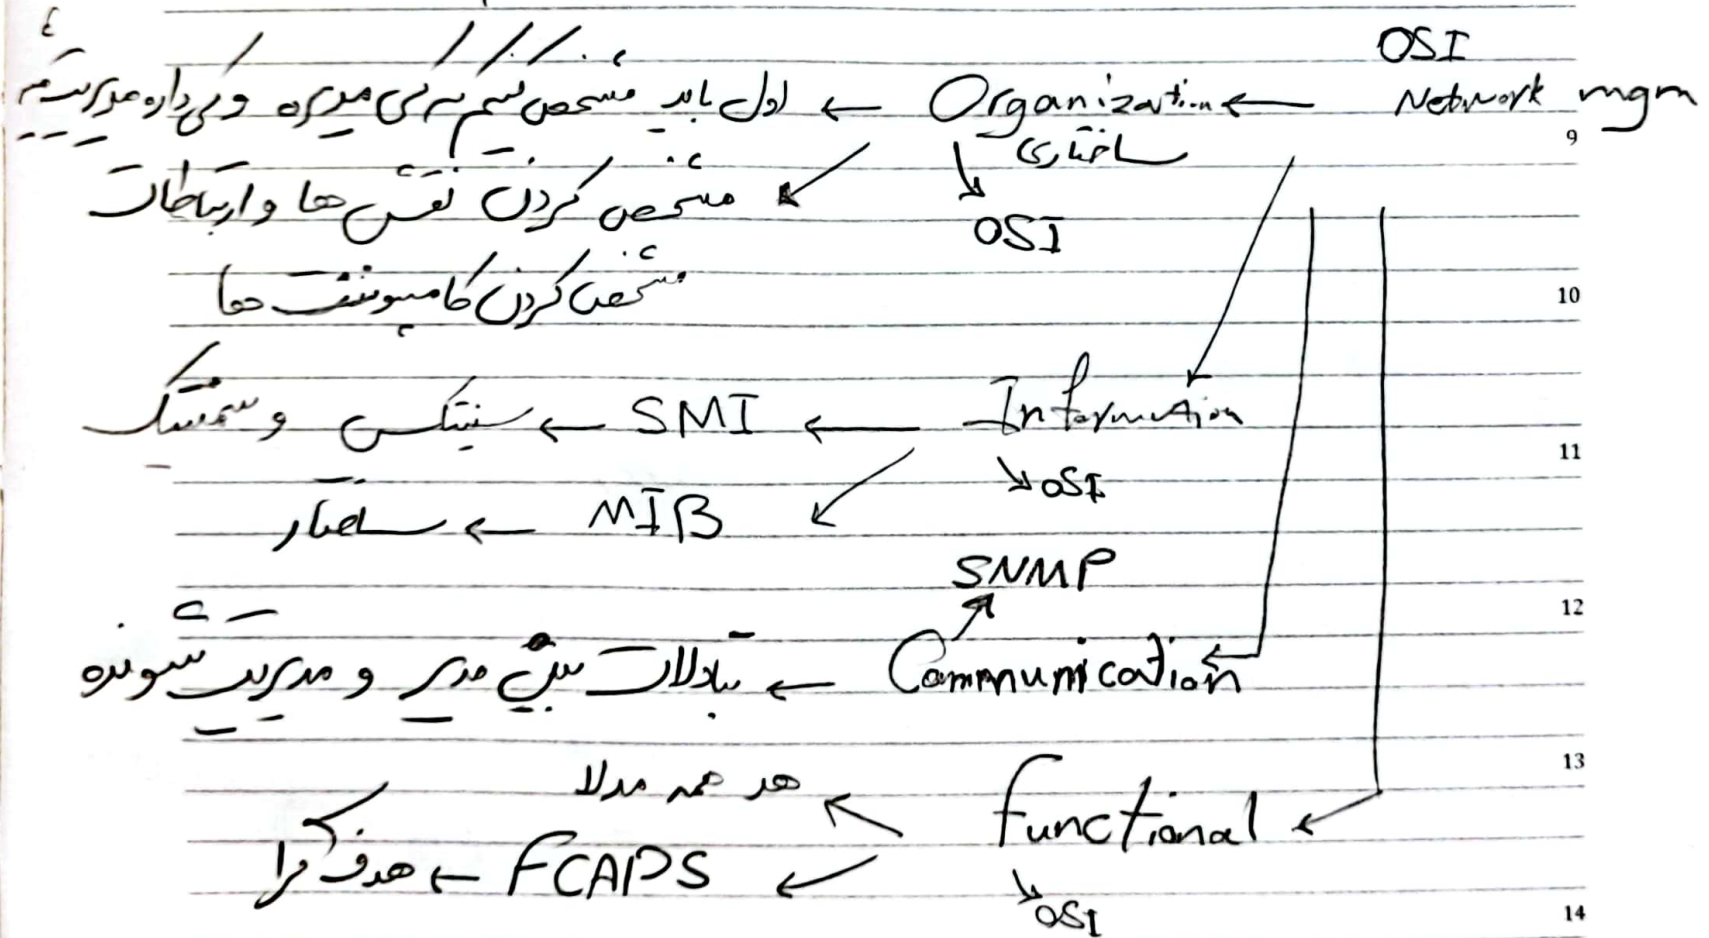 OSI
Network mgm ← Organization ← اول باید مشخص کنیم کی به کی میده و کی داره مدیریت میشه
9
ساختاری
OSI
مشخص کردن نقش ها و ارتباطات
مشخص کردن کامپوننت ها
10
Information ← SMI ← سینتکس و سمنتیک
11
OSI
MIB ← ساختار
SNMP
12
Communication ← تبادلات بین مدیر و مدیریت شونده
13
هد همه مدلا
Functional
FCAPS ← هدف گرا
OSI
14